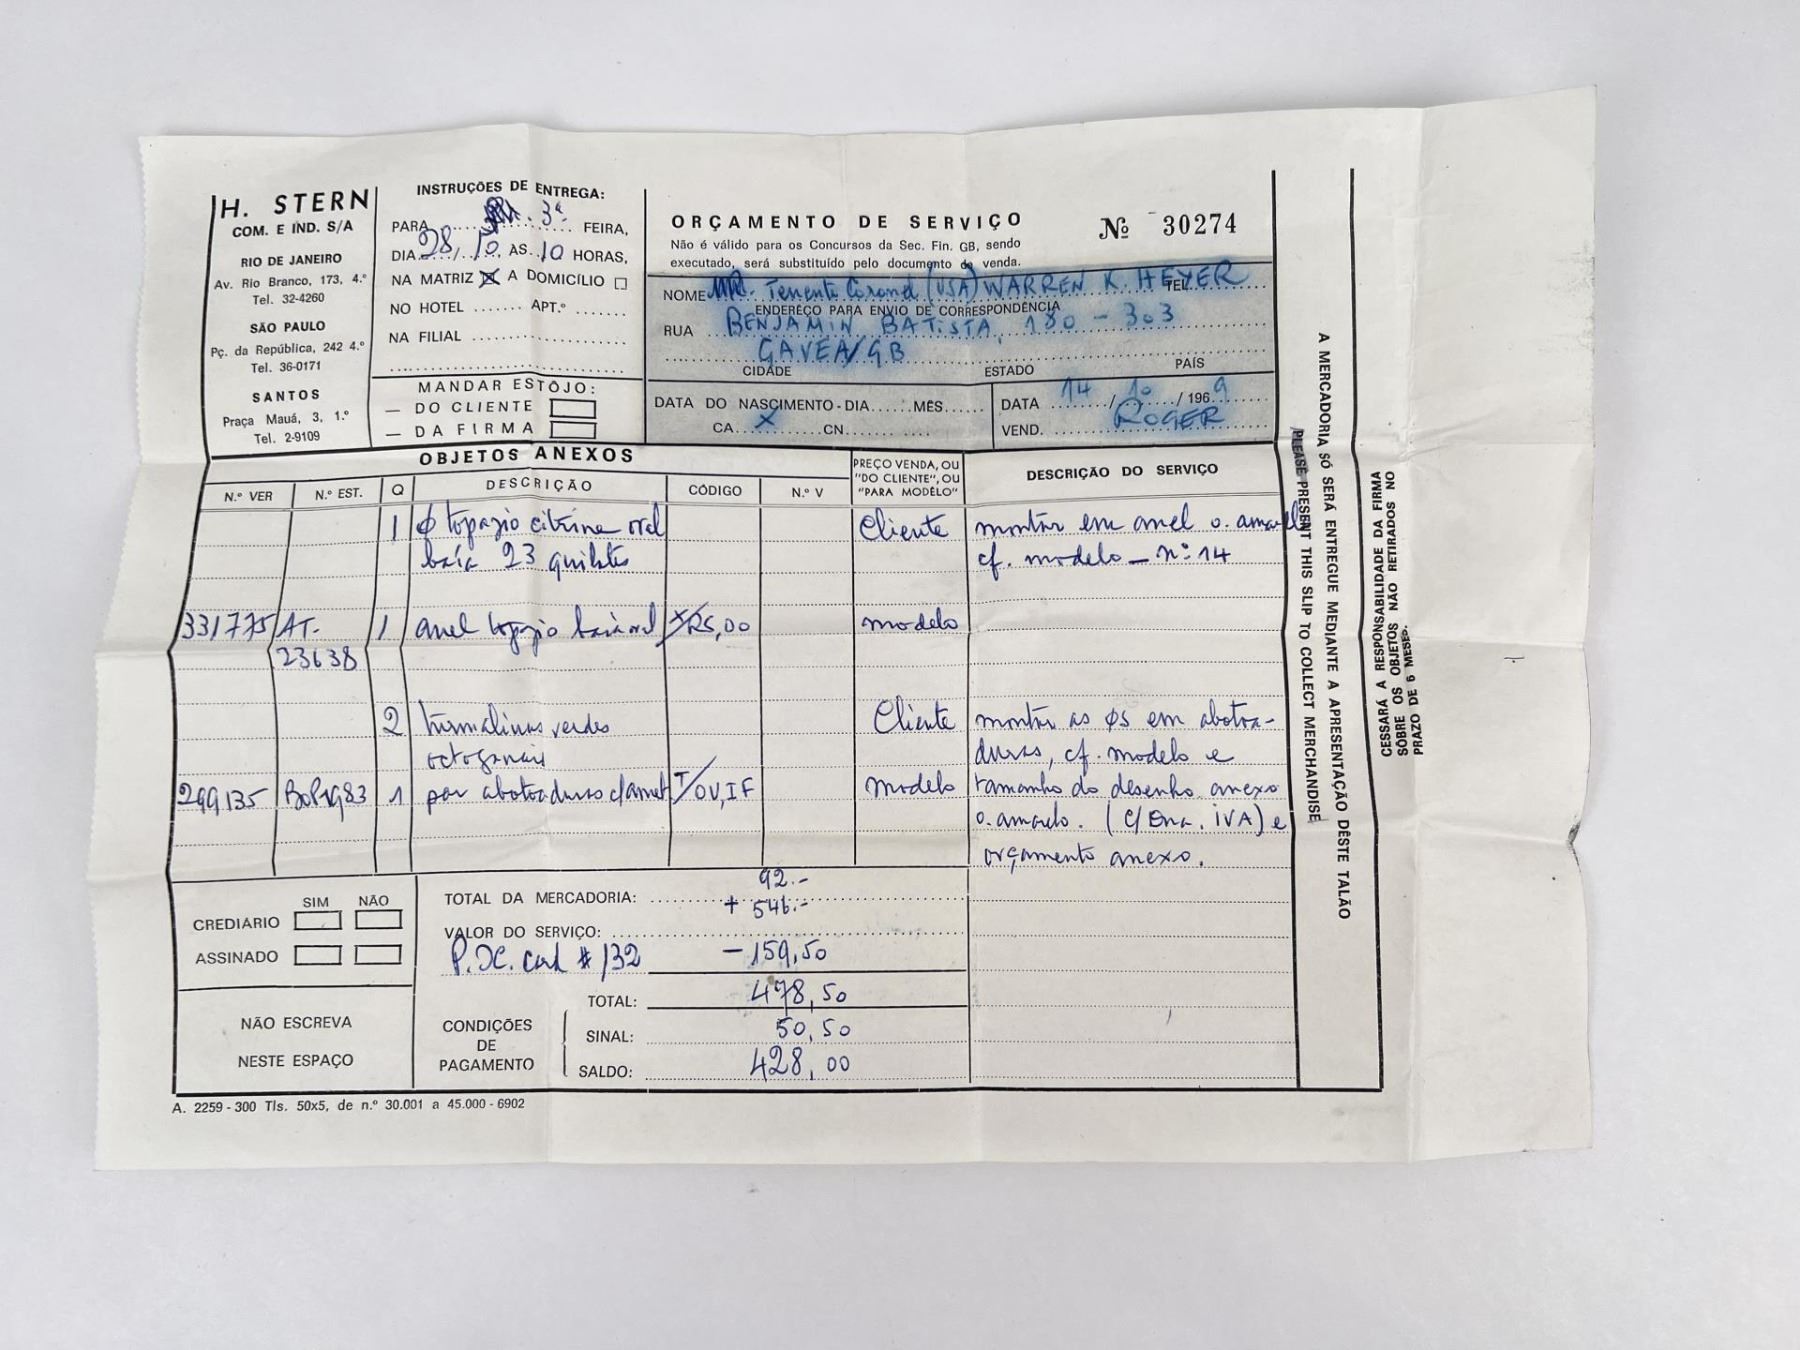 H. STERN
COM. E IND. S/A
RIO DE JANEIRO
Av. Rio Branco, 173, 4.º
Tel. 32-4260
SÃO PAULO
Pç. da República, 242 4.º
Tel. 36-0171
SANTOS
Praça Mauá, 3, 1.º
Tel. 2-9109
INSTRUÇÕES DE ENTREGA:
PARA 3ª FEIRA,
DIA 28/10 AS 10 HORAS,
NA MATRIZ X A DOMICÍLIO
NO HOTEL ....... APT.º .......
NA FILIAL
MANDAR ESTÔJO:
— DO CLIENTE
— DA FIRMA
ORÇAMENTO DE SERVIÇO
Nº 30274
Não é válido para os Concursos da Sec. Fin. GB, sendo
executado, será substituído pelo documento de venda.
NOME MR. Tenente Coronel (USA) WARREN K. HEYER TEL.
ENDERÊÇO PARA ENVIO DE CORRESPONDÊNCIA
RUA BENJAMIN BATISTA, 180 - 303
GAVEA/GB
CIDADE ESTADO PAÍS
DATA DO NASCIMENTO-DIA......MÊS......
CA X CN
DATA 14/10/1969
VEND. ROGER
OBJETOS ANEXOS
N.º VER N.º EST. Q DESCRIÇÃO CÓDIGO N.º V
PREÇO VENDA, OU
"DO CLIENTE", OU
"PARA MODÊLO"
DESCRIÇÃO DO SERVIÇO
1 φ topazio citrine oval Cliente montar em anel o. amarelo
baía 23 quilates cf. modelo - nº 14
331775 AT. 1 anel topazio baía oval modelo
23638
2 turmalinas verdes Cliente montar as φs em abotoa-
octogonais duras, cf. modelo e
299135 1 par abotoaduras c/amet T/OU,IF modelo tamanho do desenho anexo
o. amarelo. (c/ IVA) e
orçamento anexo.
SIM NÃO
CREDIÁRIO
ASSINADO
NÃO ESCREVA
NESTE ESPAÇO
TOTAL DA MERCADORIA: 92.-
+ 546.-
VALOR DO SERVIÇO:
card # 132 - 159,50
TOTAL: 478,50
CONDIÇÕES
DE
PAGAMENTO
SINAL: 50,50
SALDO: 428,00
A. 2259 - 300 Tls. 50x5, de n.º 30.001 a 45.000 - 6902
A MERCADORIA SÓ SERÁ ENTREGUE MEDIANTE A APRESENTAÇÃO DÊSTE TALÃO
PLEASE PRESENT THIS SLIP TO COLLECT MERCHANDISE
CESSARÁ A RESPONSABILIDADE DA FIRMA
SÔBRE OS OBJETOS NÃO RETIRADOS NO
PRAZO DE 6 MESES.